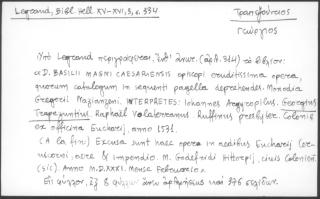 Legrand, Bibl. Hell. XV-XVI, 3, σ. 334
Τραπεζούντιος
Γεώργιος
Ὑπὸ Legrand περιγράφεται, ὑπ' ἀριθ. (ἀρ. 314) τὸ βιβλίον:
«D. BASILII MAGNI CAESARIENSIS episcopi eruditissima opera,
quorum catalogum in sequenti pagella deprehendes. Monodia
Gregorii Nazianzeni. INTERPRETES: Iohannes Argyropilus, Georgius
Trapezuntius Raphael Volaterranus Ruffinus presbyter. Coloniæ
ex officina Eucharij, anno 1531.
(A la fin) Excusa sunt haec opera in aedibus Eucharij Cer-
uicorni, aere & impendio M. Godefridi Hittorpij, ciuis Colonien.
(sic). Anno M.D.XXXI. Mense Februario».
Εἰς φύλλον, ἐξ 8 φύλλων ἄνευ ἀριθμήσεως καὶ 376 σελίδων.